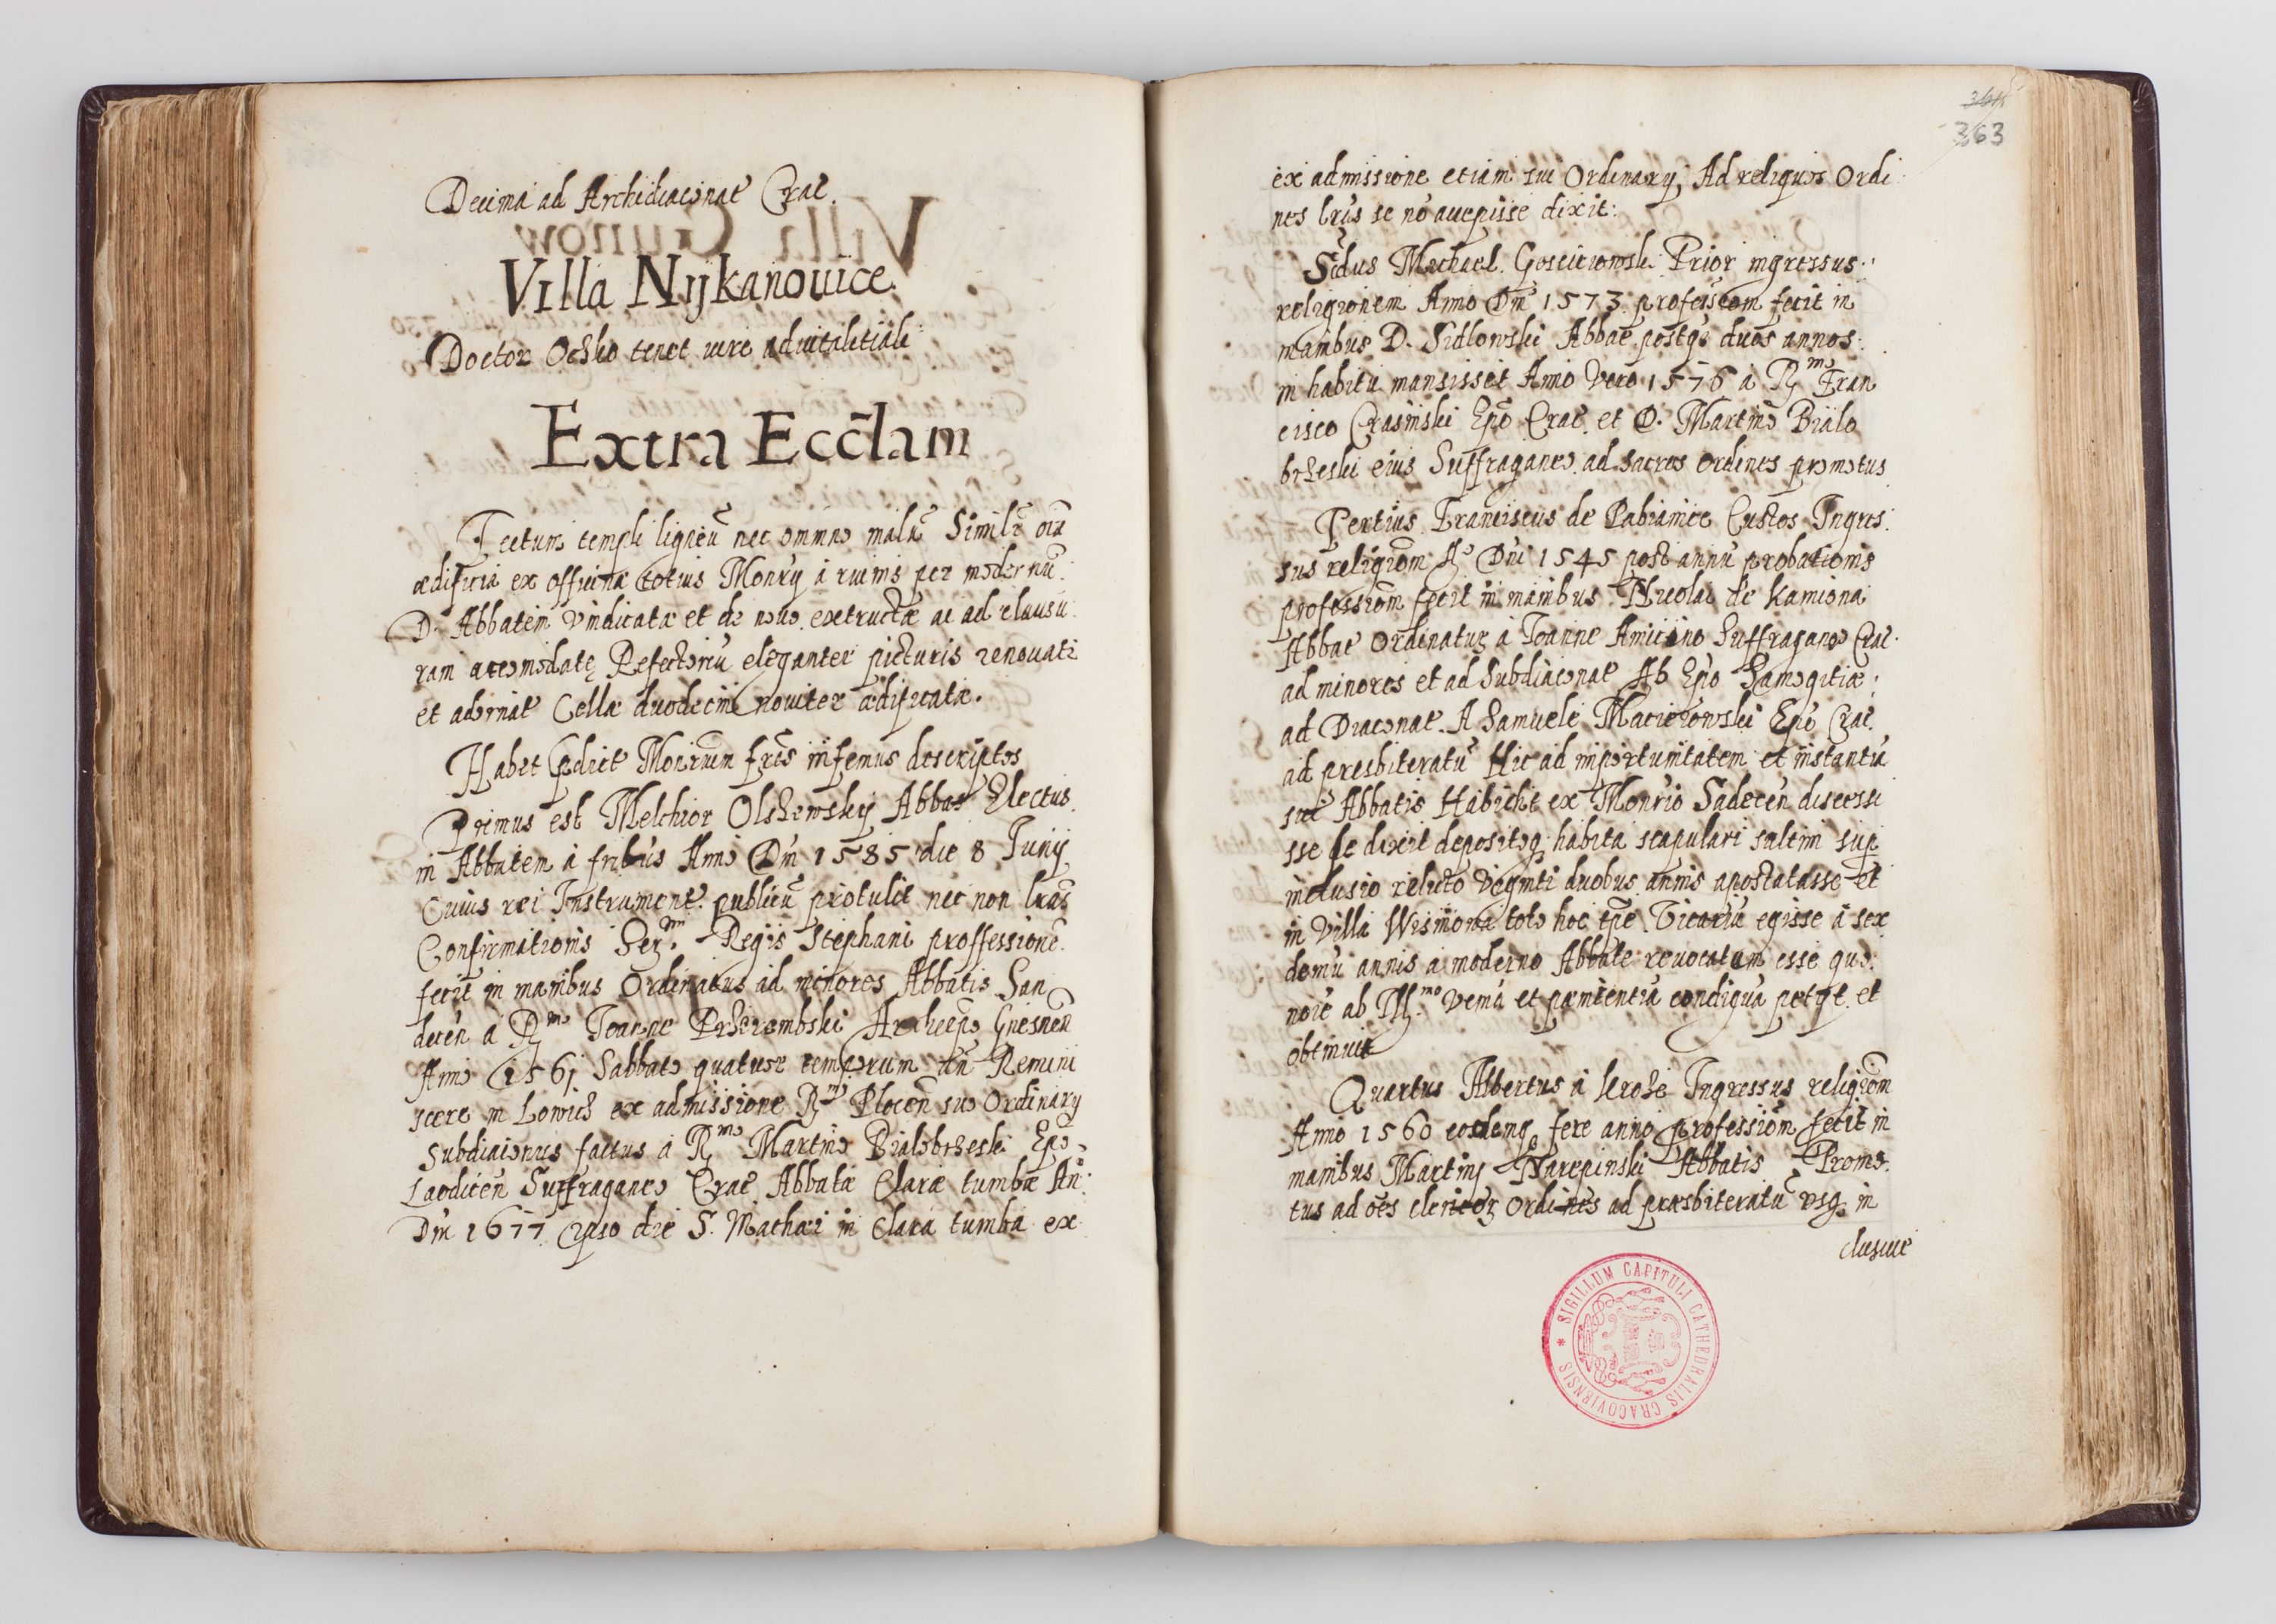 Decima ad Archidiaconat Crac.
Villa Nijkanouice.
Doctor Ocsko tenet iure aduitalitiali
Extra Eccłam
Tectum templi ligneū nec omnno malū Simile oīa
ædificia ex officina totius Monrȳ a ruinis per modernū
D. Abbatem vindicatæ et de nouo extructæ ac ad clausu
ram accomodatę Refectoriū eleganter picturis renouatū
et adornat Cellæ duodecim nouiter ædificatæ.
Habet pdict Monrium fr̄es infernus descriptos
Primus est Melchior Olshewskij Abbas Electus
in Abbatem a fribus Anno Dni 1585 die 8 Junij
Cuius rei Instrument. publicū protulit nec non lras
Confirmationis Ser.mi Regis Stephani proffessionē
fecit in manibus Ordinatus ad minores Abbatis San
decen a R.mo Joanne Prherembski Archiepo Gnesnen
Anno 1561 Sabbato quatuor temporum an Remini
scere in Lowich ex admissione R.mi Plocen sui Ordinarij
Subdiaconus factus a R.mo Martino Bialobrheski Epo
Laodicen Suffraganeo Crac Abbatæ Claræ tumbæ An:
Dni 1677 ipso die S. Mathæi in Clara tumba ex
364
363
ex admissione etiam sui Ordinarij, Ad reliquos Ordi
nes lrus se nō accepisse dixit:
Scdus Michael Goscieiowski Prior ingressus
religionem Anno Dni 1573 professiom fecit in
manibus D. Sidlowski Abbae postqz duos annos
in habitu mansisset Anno Vero 1576 a R.mo Fran
cisco Crasinski Epo Crac. et D. Martino Bialo
brheski eius Suffraganeo ad sacros ordines promotus
Tertius Franciscus de Pabianice Custos Ingres:
sus religiom Ao Dni 1545 post annū probationis
professiom fecit in manibus Nicolai de Kamiona
Abbae Ordinatur a Joanne Amicino Suffraganeo Crac.
ad minores et ad Subdiaconat Ab Epo Samogitiæ
ad Diaconat. A Samuele Macieiowski Epo Crac
ad presbiteratū Hic ad importunitatem et instantiā
sui Abbatis Habicht ex Monrio Sadecen discessi
sse se dixit depositoqz habitu scapulari saltim sup
indusio relicto viginti duobus annis apostatasse et
in villa Wisniowa toto hoc tpe Vicariū egisse a sex
demū annis a moderno Abbate reuocatum esse quo
noīe ab Ill.mo veniā et pœnitentiā condignā petyt et
obtinuit
Quartus Albertus a Krosē Ingressus religiom
Anno 1560 eodemqz fere anno professiom fecit in
manibus Martinj Narepinski Abbatis Promo
tus ad oēs clericoz ordines ad præsbiteratū vsqz in
clusiue
SIGILLUM CAPITULI CATHEDRALIS CRACOVIENSIS